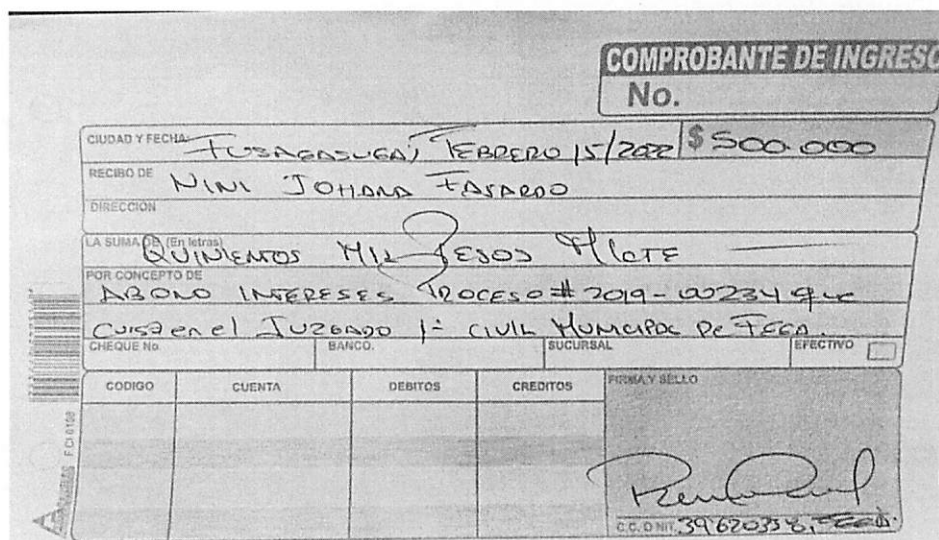 COMPROBANTE DE INGRESO
No.
CIUDAD Y FECHA: FUSAGASUGA, FEBRERO 15/2022 $ 500.000
RECIBO DE NINI JOHANA FAJARDO
DIRECCIÓN
LA SUMA DE (En letras) QUINIENTOS MIL PESOS M/CTE
POR CONCEPTO DE
ABONO INTERESES PROCESO # 2019-00234 que
cursa en el JUZGADO 1º CIVIL MUNICIPAL DE FGGA.
CHEQUE No. BANCO. SUCURSAL EFECTIVO
CODIGO CUENTA DEBITOS CREDITOS FIRMA Y SELLO
C.C. O NIT. 39620338, FGGA.
F CI 0100